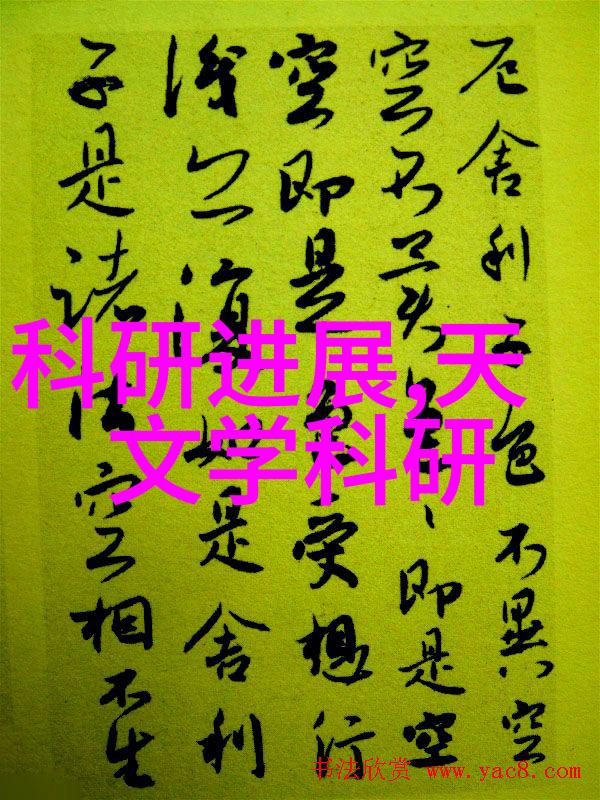 厄舍利子色不異空
空不異色々即是空
空即是色受想行
識亦復如是舍利
子是諸法空相不生
科研进展,天
文学科研
书法欣赏 www.yac8.com